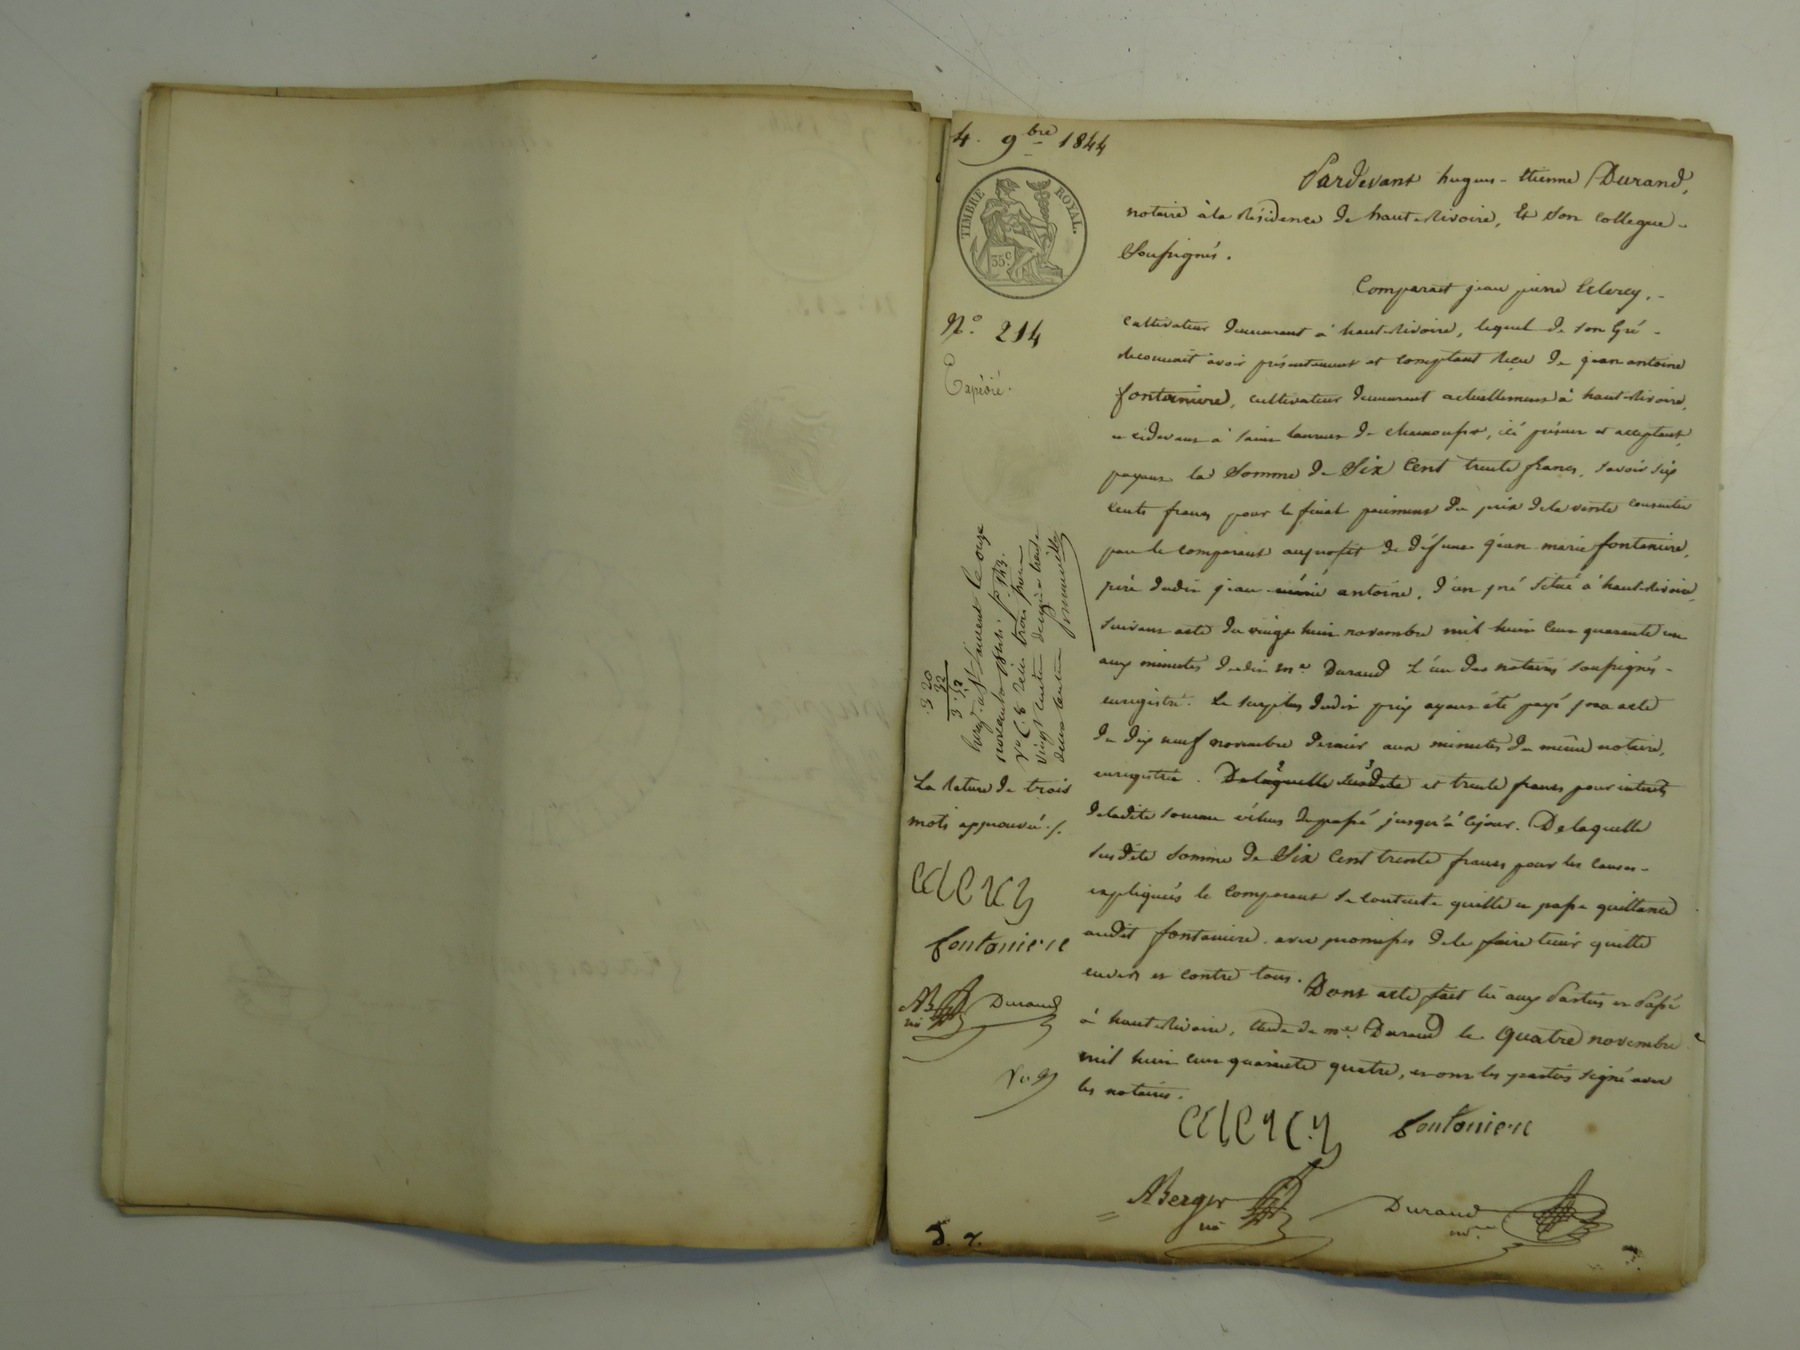 4. 9bre 1844
TIMBRE ROYAL.
35c
N.o 214
Expédié.
Pardevant hugues-étienne Durand,
notaire à la résidence de haute-rivoire, et son collegue
soussignés.
Comparait jean pierre Eclercy,
cultivateur demeurant à haute-rivoire, lequel de son gré
reconnait avoir présentement et comptant reçu de jean antoine
fonteniere, cultivateur demeurant actuellement à haute-rivoire,
et cidevant à saint laurent de chamousset, ici présent et acceptant,
payant la somme de Six Cent trente francs, savoir six
cents francs pour le final paiement du prix de la vente consentie
par le comparant au profit de défunt jean-marie fonteniere,
père dudit jean marie antoine, d'un pré situé à haute-rivoire,
suivant acte du vingt huit novembre mil huit cent quarante un
aux minutes dudit me Durand l'un des notaires soussignés
enregistré. Le surplus dudit prix ayant été payé par acte
du dix neuf novembre dernier aux minutes du même notaire,
enregistré. Delaquelle susdite et trente francs pour intérêts
deladite somme échus du passé jusqu'à cejour. Delaquelle
susdite somme de Six Cent trente francs pour les causes
expliquées le comparant se contente quitte et passe quittance
audit fonteniere, avec promesses de le faire tenir quitte
envers et contre tous. Dont acte fait lu aux Parties et Passé
à haute-rivoire, étude de me Durand le quatre novembre
mil huit cent quarante quatre, et ont les parties signé avec
les notaires.
Enreg. à St Laurent le onze
novembre 1844. fo 143.
vo C. 8 reçu trois francs
vingt centimes dixième trente
deux centimes
3 20
32
3 52
La rature de trois
mots approuvée./.
eclercy
fontoniere
AB
no
Durand
eclercy
fontoniere
ABerger
no
Durand
nore
D. r.